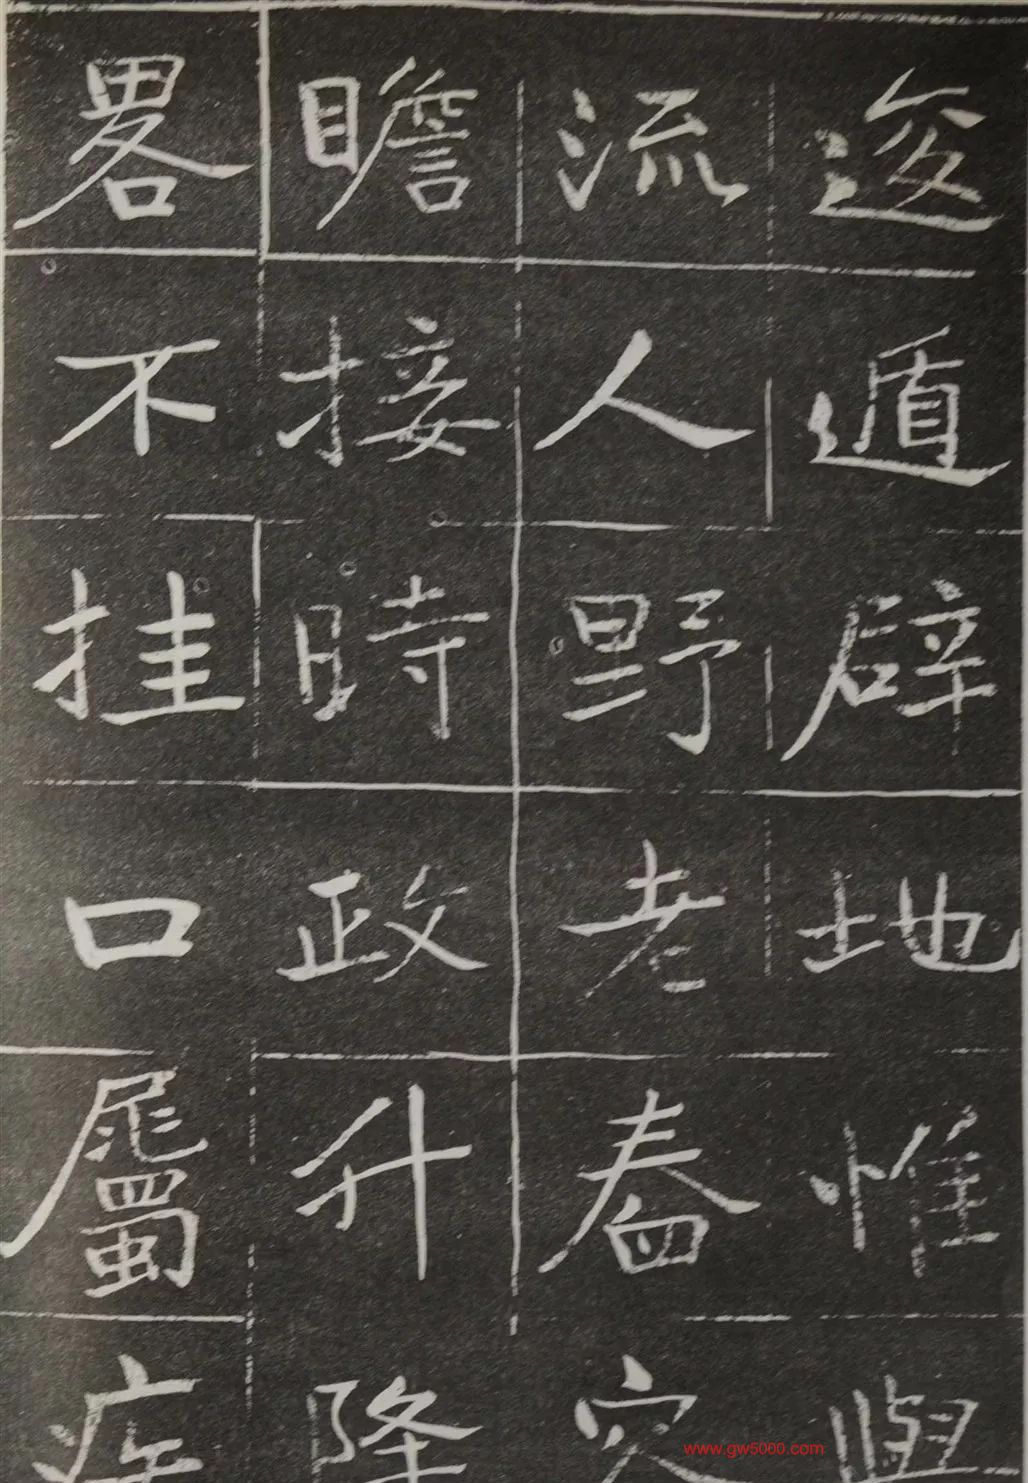 逡遁辟地惟
流人野老舂
瞻接時政升降
畧不挂口屬疾
www.gw5000.com